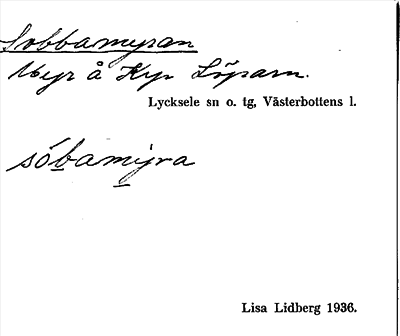 Sobbamyran
Myr å Kyr Löparn.
Lycksele sn o. tg, Västerbottens l.
sóbamýra
Lisa Lidberg 1936.